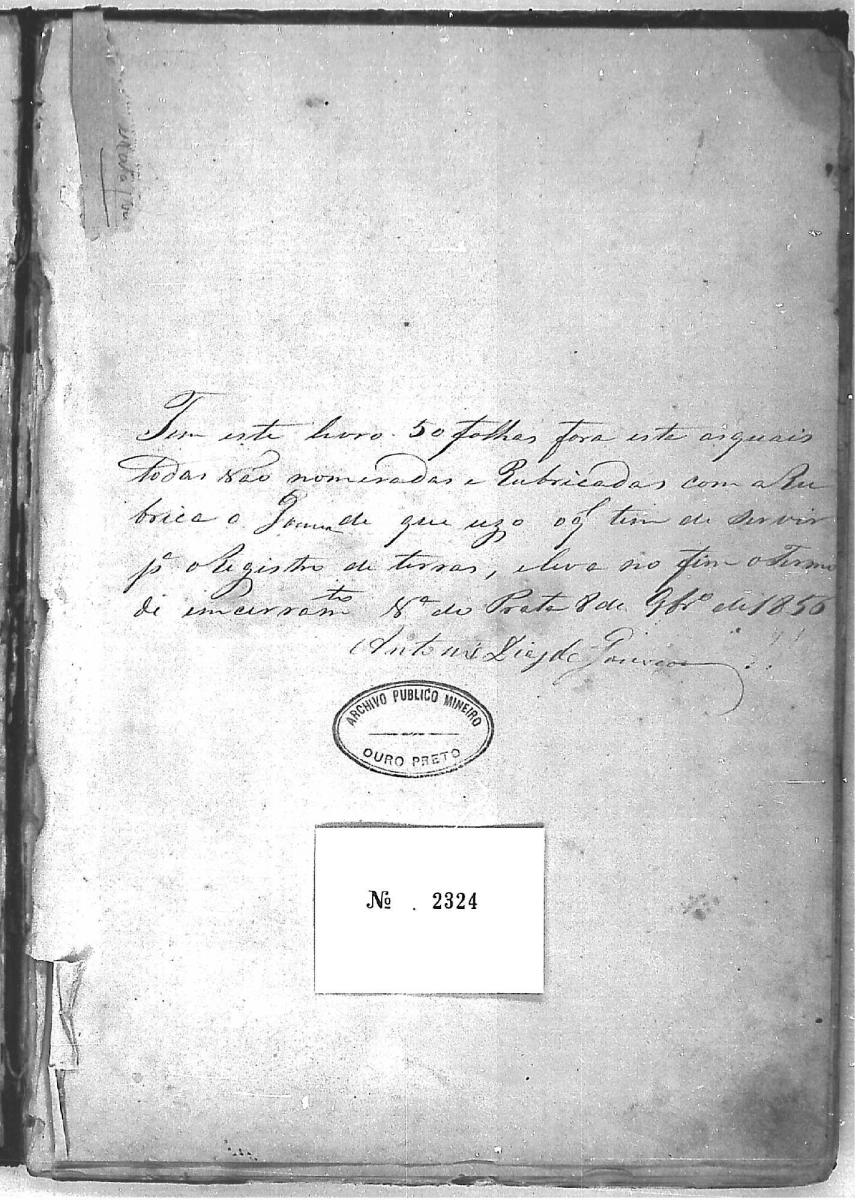 Tem este livro 50 folhas fora este as quais
todas vão nomeradas e Rubricadas com a Ru
brica o de que uzo o q̃ tem de servir
pª o Registro de terras, e leva no fim o Termo
de incerramto Va do Prata 8 de 9brº de 1856
Antonio Dias de
ARCHIVO PUBLICO MINEIRO
OURO PRETO
Nº 2324